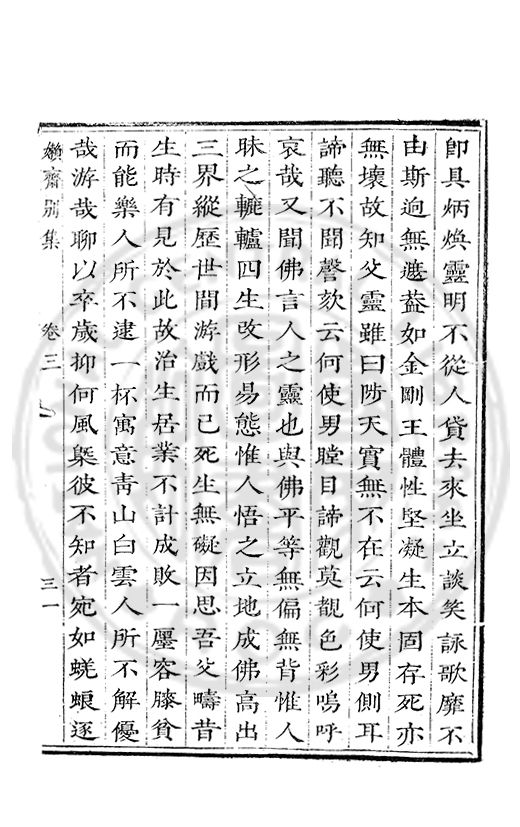 卽具炳煥靈明不從人貸去來坐立談笑詠歌靡不
由斯逈無遮葢如金剛王體性堅凝生本固存死亦
無壞故知父靈雖曰陟天實無不在云何使男側耳
諦聽不聞謦欬云何使男瞠目諦觀莫覩色彩嗚呼
哀哉又聞佛言人之靈也與佛平等無偏無背惟人
昧之轆轤四生改形易態惟人悟之立地成佛高出
三界縱歷世間游戲而已死生無礙因思吾父疇昔
生時有見於此故治生居業不計成敗一廛容膝貧
而能樂人所不逮一杯寓意靑山白雲人所不解優
哉游哉聊以卒歲抑何風槩彼不知者宛如蜣蜋逐
嬾齋別集
卷三
三一